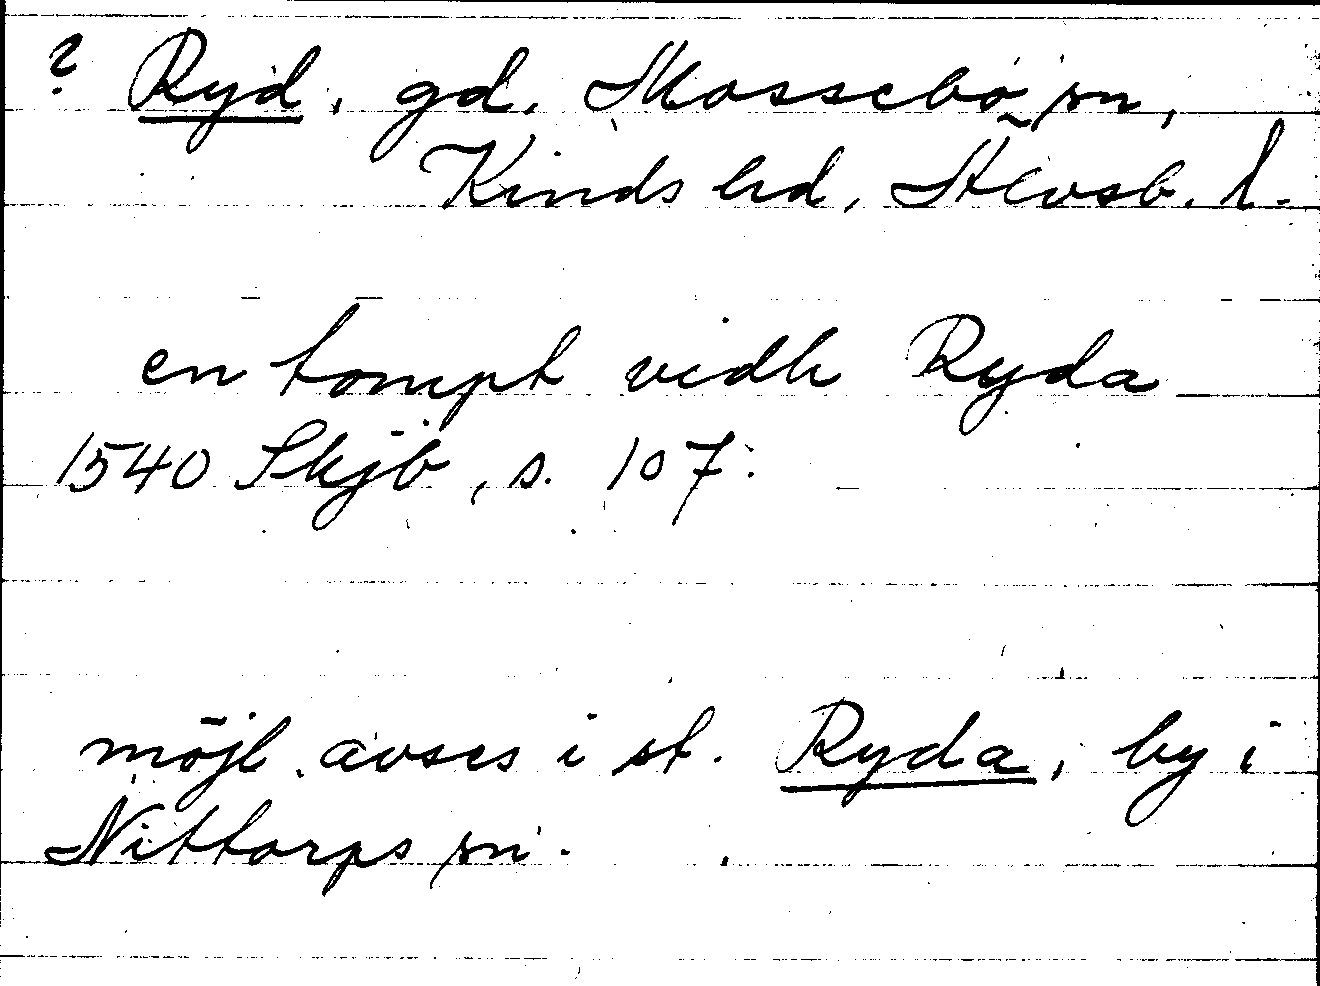 ? Ryd, gd, Mossebo sn,
Kinds hd, Älvsb. l.
en tompt vidh Ryda
1540 Skjb, s. 107.
möjl. avses i st. Ryda, by i
Nittorps sn.